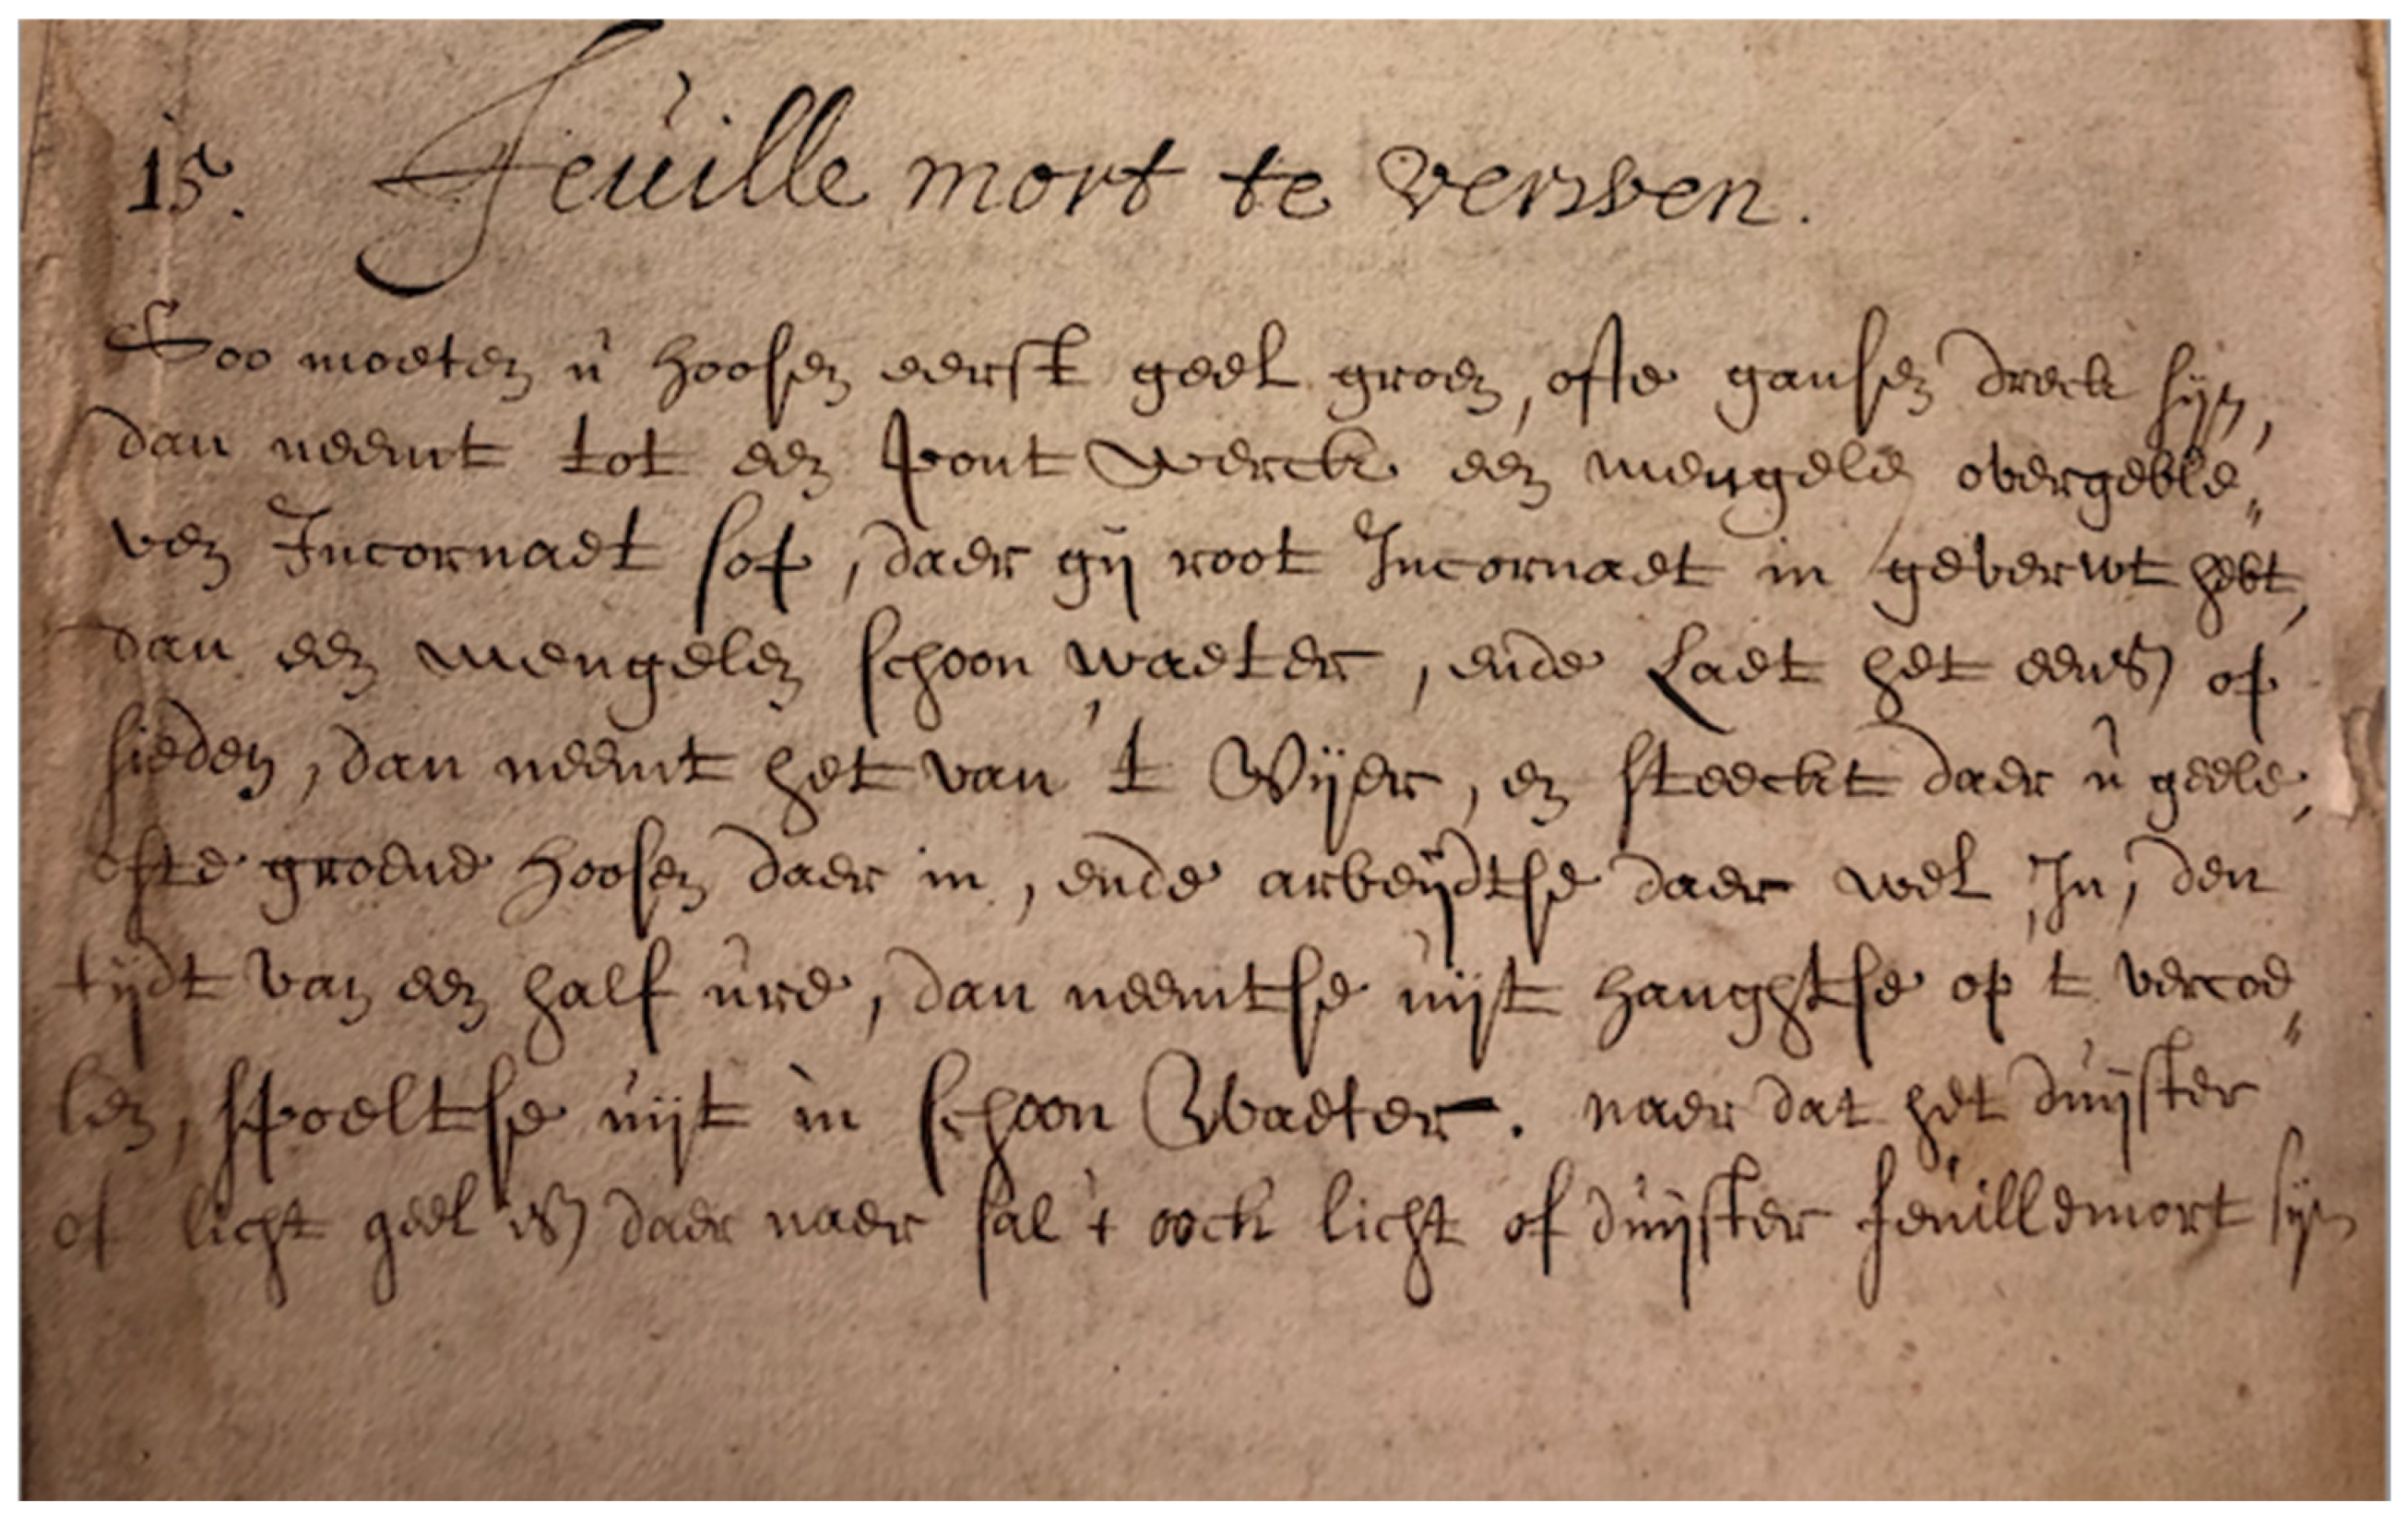 15. Feúille mort te verwen.
Soo moeten ú hoosen eerst geel groen, ofte gansen dreck sijn,
dan neemt tot een pont werck een mengele overgeble„
ven Incornaet sop, daer gij root Incornaet in geverwt hebt,
dan een mengelen schoon waeter, ende Laet het eens op
sieden, dan neemt het van 't Vijer, en steeckt daer ú geele,
ofte groene hoosen daer in, ende arbeijdtse daer wel In, den
tijdt van een half úre, dan neemtse úijt hanghtse op 't vercoe„
len, spoeltse úijt in schoon Waeter. naer dat het dúijster
of licht geel is daer naer sal 't oock licht of dúijster feúillemort sijn